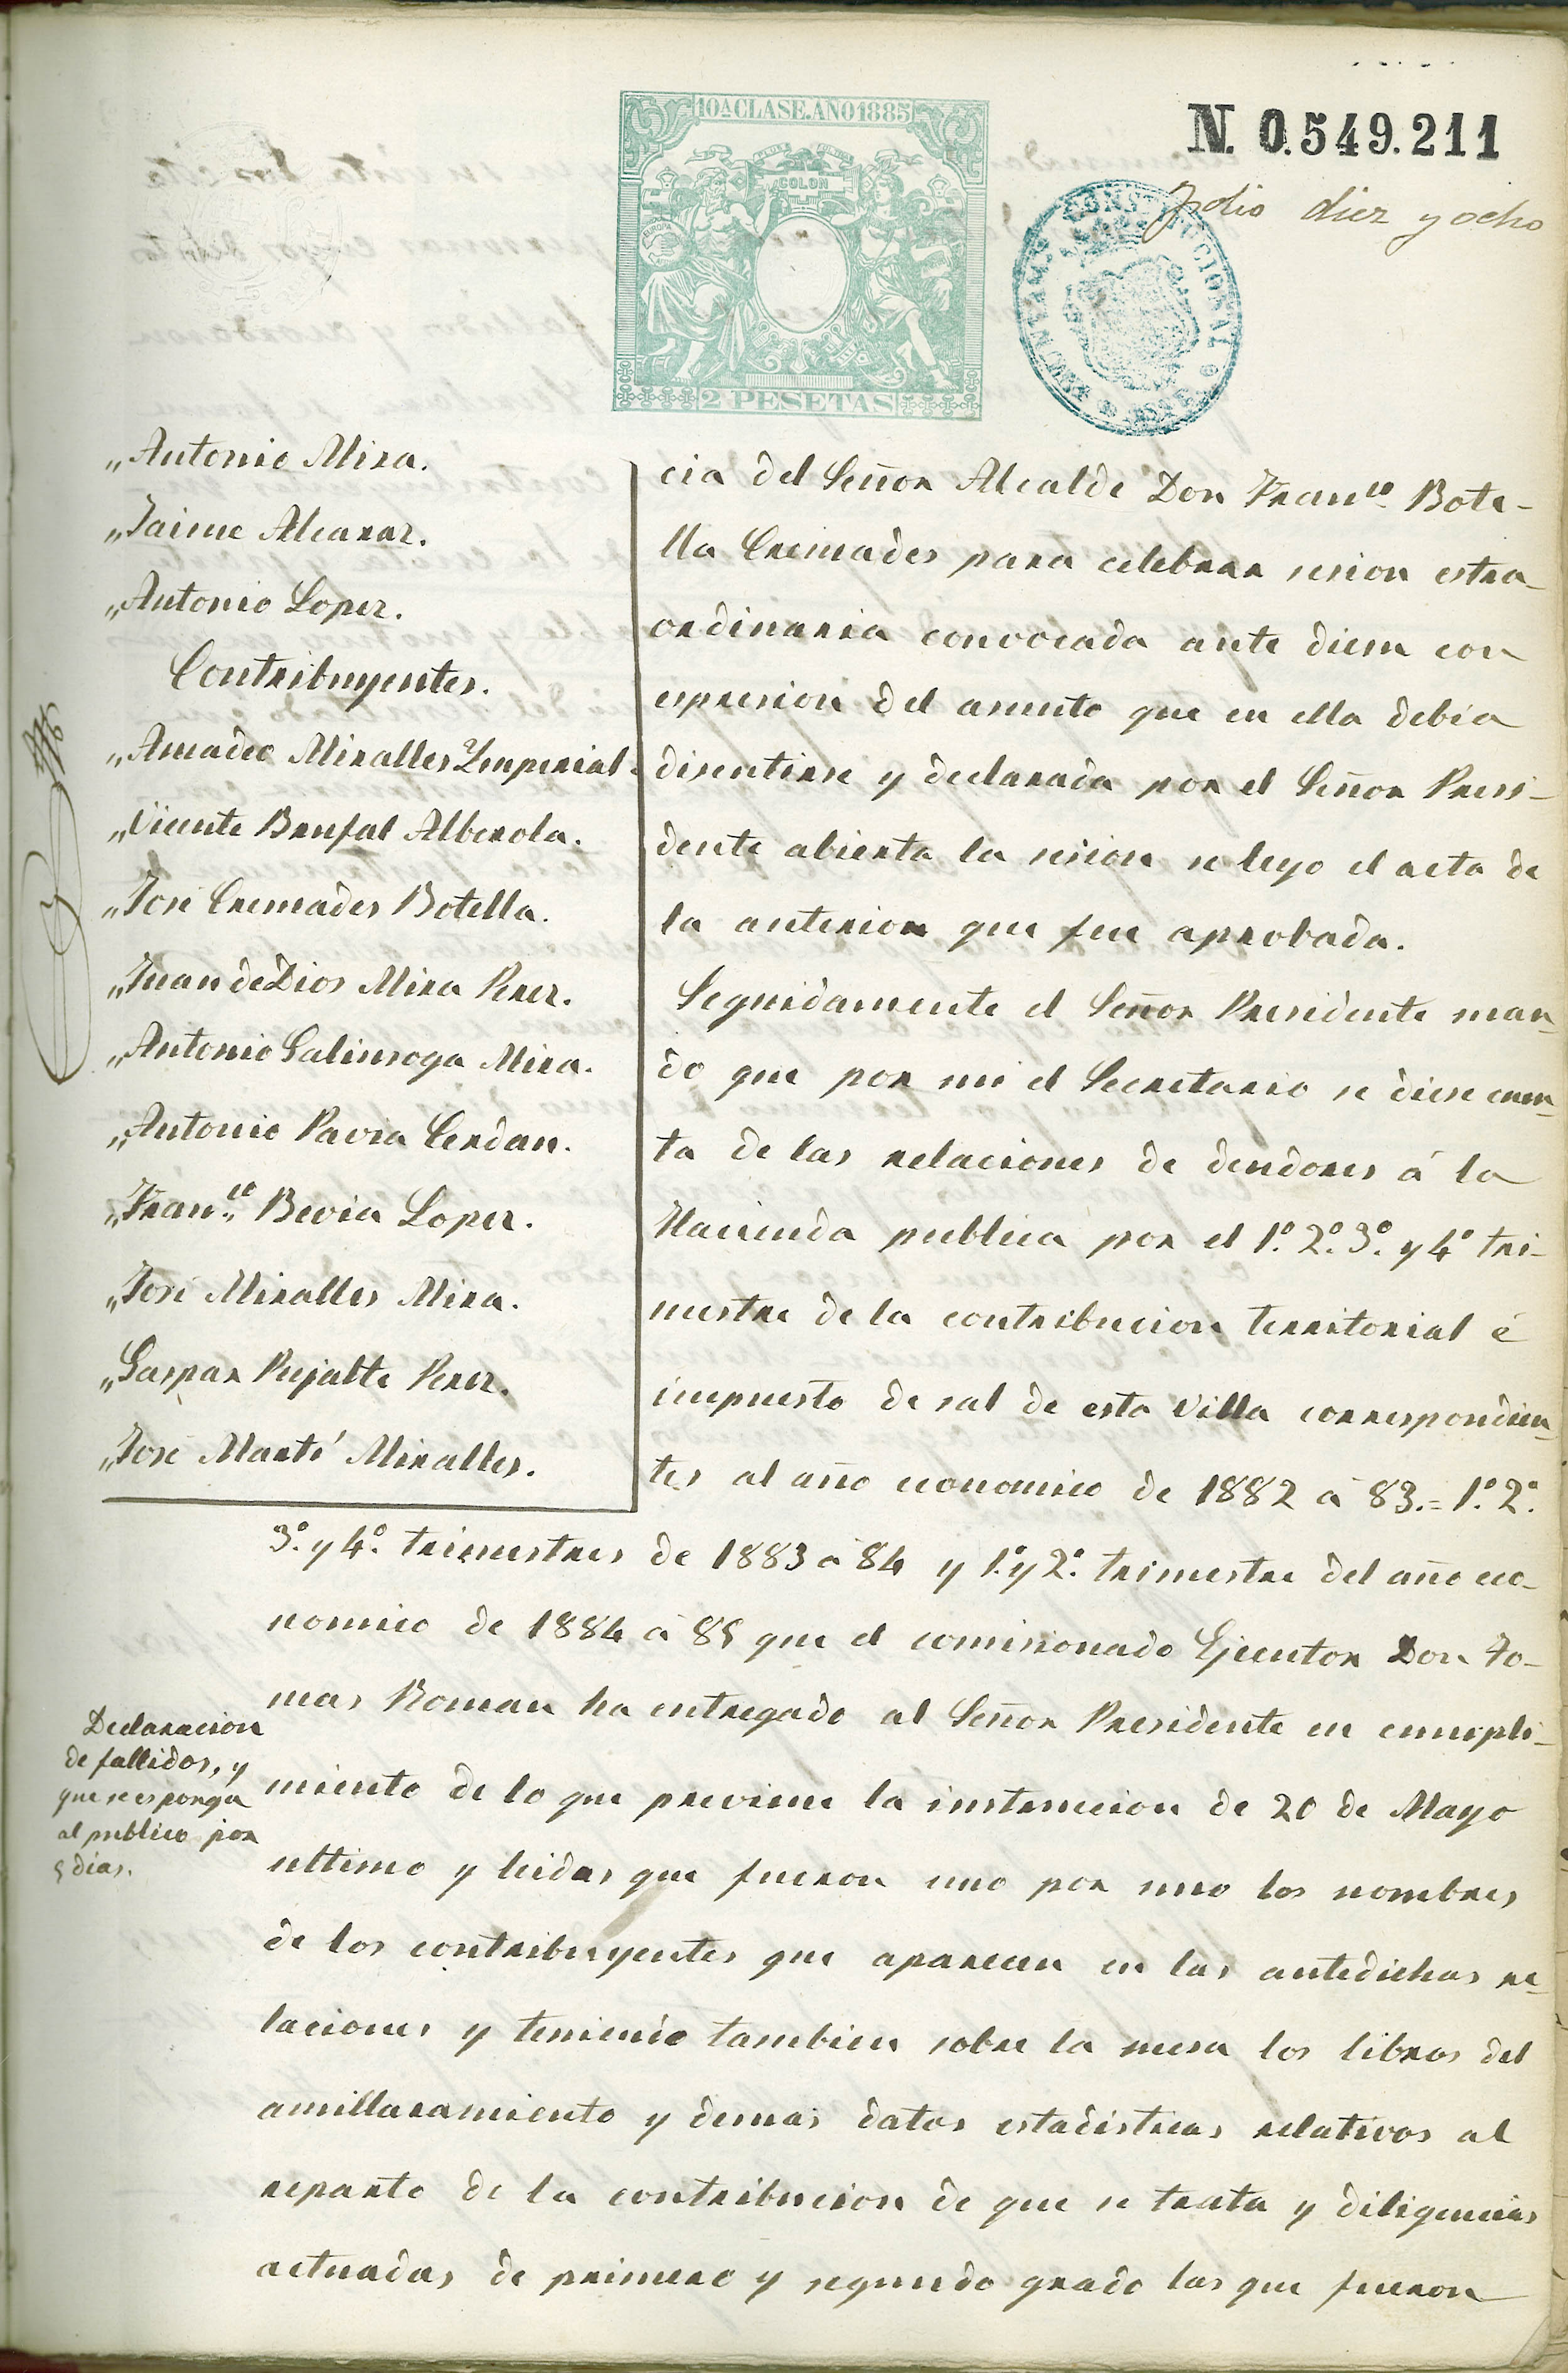 10ª CLASE. AÑO 1885
PLUS ULTRA
COLON
EUROPA
2 PESETAS
N. 0.549.211
AYUNTAMIENTO CONSTITUCIONAL
Folio diez y ocho
„Antonio Mira.
„Jaime Alcaraz.
„Antonio Lopez.
Contribuyentes.
„Amadeo Miralles Ymperial.
„Vicente Brufal Alberola.
„José Cremades Botella.
„Juan de Dios Mira Perez.
„Antonio Galinsoga Mira.
„Antonio Pavia Cerdan.
„Franco. Bevia Lopez.
„José Miralles Mira.
„Gaspar Pujalte Perez.
„José Martí Miralles.
cia del Señor Alcalde Don Franco. Bote-
lla Cremades para celebrar sesion estra-
ordinaria convocada ante diem con
espresion del asunto que en ella debia
discutirse y declarada por el Señor Presi-
dente abierta la sesion se leyo el acta de
la anterior que fue aprobada.
Seguidamente el Señor Presidente man-
do que por mi el Secretario se diese cuen-
ta de las relaciones de deudores á la
Hacienda publica por el 1º. 2º. 3º. y 4º tri-
mestre de la contribucion territorial é
impuesto de sal de esta Villa correspondien-
tes al año economico de 1882 á 83.= 1º. 2º.
3º. y 4º. trimestres de 1883 á 84 y 1º. y 2º. trimestre del año eco-
nomico de 1884 á 85 que el comisionado Ejecutor Don To-
mas Roman ha entregado al Señor Presidente en cumpli-
miento de lo que previene la instruccion de 20 de Mayo
ultimo y leidas que fueron uno por uno los nombres
de los contribuyentes que aparecen en las antedichas re-
laciones y teniendo tambien sobre la mesa los libros del
amillaramiento y demas datos estadisticas relativos al
reparto de la contribucion de que se trata y diligencias
actuadas de primero y segundo grado las que fueron
Declaracion
de fallidos, y
que se esponga
al publico por
5 dias.